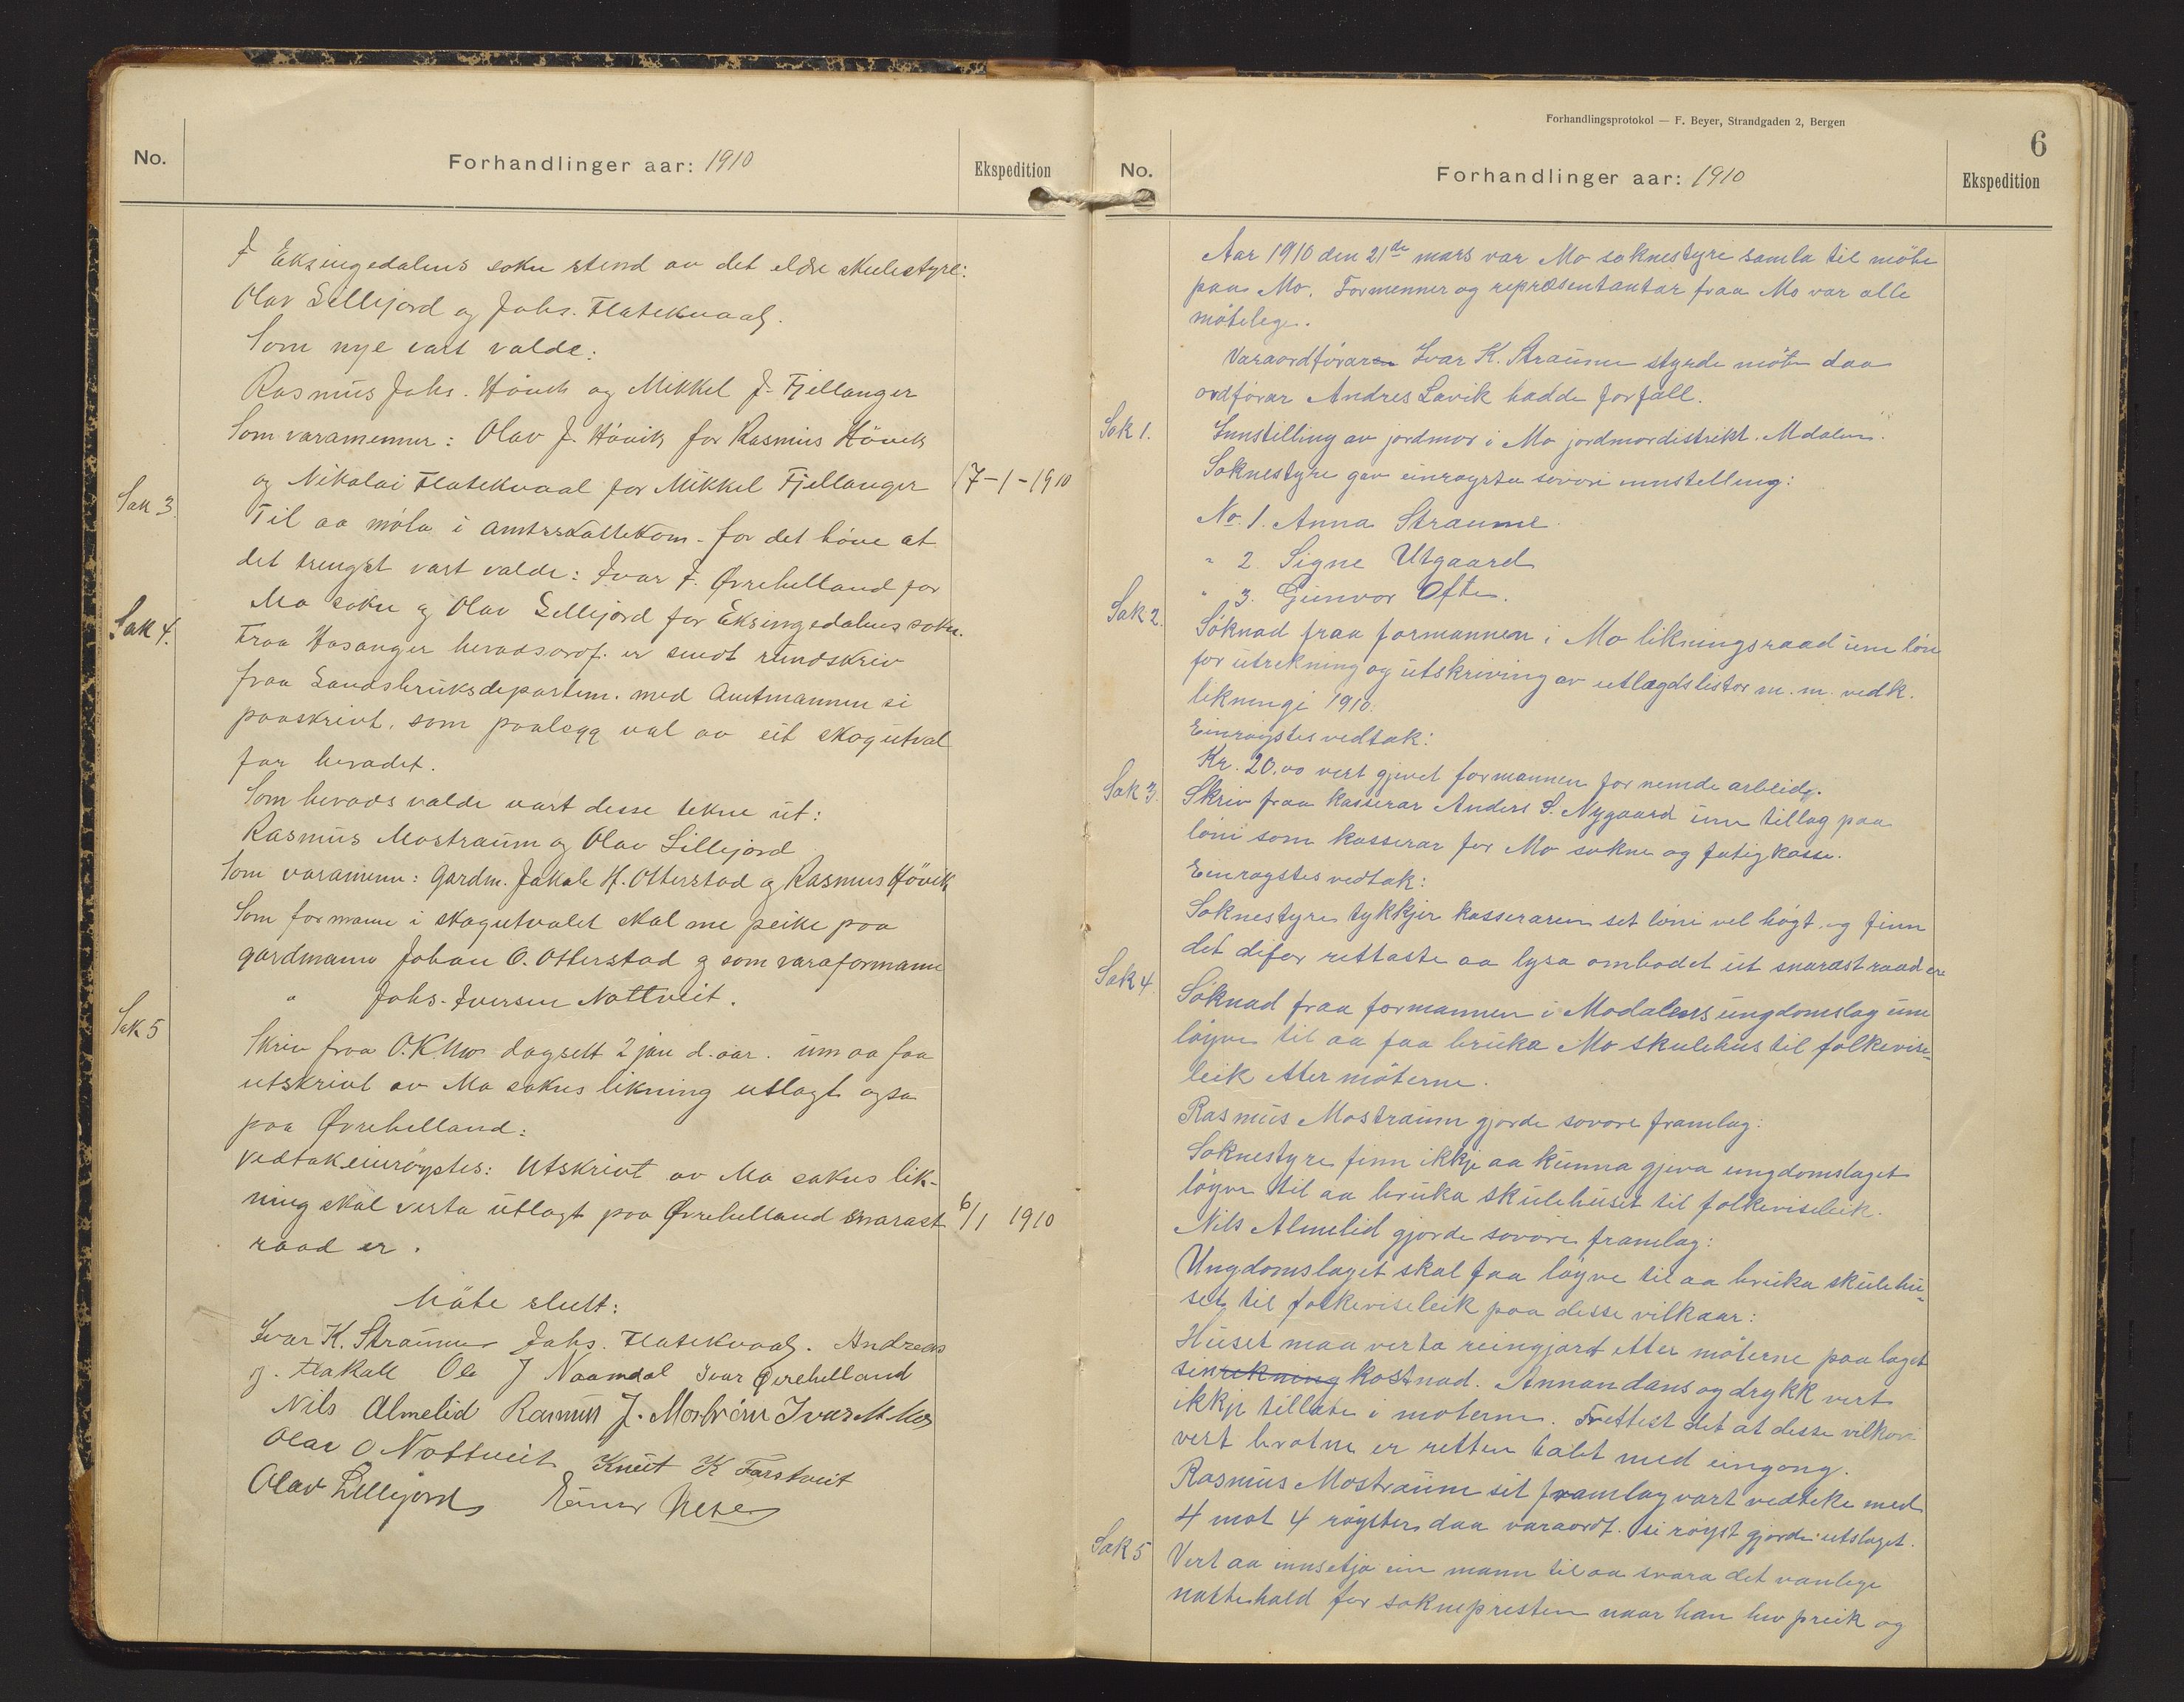 No.
Forhandlinger aar: 1910
Ekspedition
I Eksingedalens sokn stend av det eldre skulestyre:
Olav Lillejord og Johs. Flatekvaal.
Som nye vart valde:
Rasmus Johs. Hövik og Mikkel J. Fjellanger
Som varamenner: Olav J. Hövik for Rasmus Hövik
og Nikolai Flatekvaal for Mikkel Fjellanger 17-1-1910
Sak 3.
Til aa möta i amtsskattekom. for det höve at
det trengst vart valde: Ivar J. Øvrehelland for
Mo sokn og Olav Lillejord for Eksingedalens sokn.
Sak 4.
Fraa Hosanger heradsordf. er sendt rundskriv
fraa Landsbruksdepartem. med Amtmannen si
paaskrivt, som paalegg val av eit skogutval
for heradet.
Som herads valde vart desse tekne ut:
Rasmus Mostraum og Olav Lillejord
Som varamenn: Gardm. Jakob H. Otterstad og Rasmus Hövik
Som formann i skogutvalet skal me peike paa
gardmann Johan O. Otterstad og som varaformann
" Johs. Iversen Nottveit.
Sak 5
Skriv fraa O. K. Mo dagsett 2 jan d. aar. um aa faa
utskrivt av Mo sokns likning utlagt ogso
paa Øvrehelland:
Vedtak einröystes: Utskrivt av Mo sokns lik-
ning skal verta utlagt paa Øvrehelland snarast 6/1 1910
raad er.
Möte slutt:
Ivar K. Straume Johs. Flatekvaal. Andreas
J. Ole J Naamdal Ivar Øvrehelland
Nils Almelid Rasmus J. Mostraum Ivar M Mo
Olav O Nottveit Knut K Farstveit
Olav Lillejord Einar
Forhandlingsprotokol — F. Beyer, Strandgaden 2, Bergen
6
No.
Forhandlinger aar: 1910
Ekspedition
Aar 1910 den 21de mars var Mo soknestyre samla til möte
paa Mo. Formenner og repræsentantar fraa Mo var alle
mötelege.
Varaordföraren Ivar K. Straume styrde möte daa
ordförar Andres Lavik hadde forfall.
Sak 1.
Innstilling av jordmor i Mo jordmordistrikt. Modalen.
Soknestyre gav einröysta sovori innstelling:
No. 1. Anna Straume.
" 2 Signe Utgaard
" 3. Gunvor Ofte.
Sak 2.
Söknad fraa formannen i Mo likningsraad um lön
for utrekning og utskriving av utlagdslistor m. m. vedk.
likningi 1910.
Einröystes vedtak:
Kr. 20.00 vert gjevet formannen for nemde arbeid.
Sak 3.
Skriv fraa kasserar Anders S. Nygaard um tillag paa
löni som kasserar for Mo sokne og fatigkasse.
Einröystes vedtak:
Soknestyre tykkjer kasseraren set löni vel högt, og finn
det difor rettaste aa lysa ombodet ut snarast raad er
Sak 4.
Söknad fraa formannen i Modalens ungdomslag um
löyve til aa faa bruka Mo skulehus til folkevise-
leik etter möterne.
Rasmus Mostraum gjorde sovore framlag:
Soknestyre finn ikkje aa kunna gjeva ungdomslaget
löyve til aa bruka skulehuset til folkeviseleik.
Nils Almelid gjorde sovore framlag:
Ungdomslaget skal faa löyve til aa bruka skulehu-
set til folkeviseleik paa desse vilkaar:
Huset maa verta reingjort etter möterne paa laget
sen rekning kostnad. Annan dans og drykk vert
ikkje tillate i möterne. Frettest det at desse vilkori
vert brotne er retten tabt med eingong.
Rasmus Mostraum sit framlag vart vedteke med
4 mot 4 röyster daa varaordf. si röyst gjorde utslaget.
Sak 5
Vert aa innsetja ein mann til aa svara det vanlege
nattehald for soknepresten naar han hev preik og